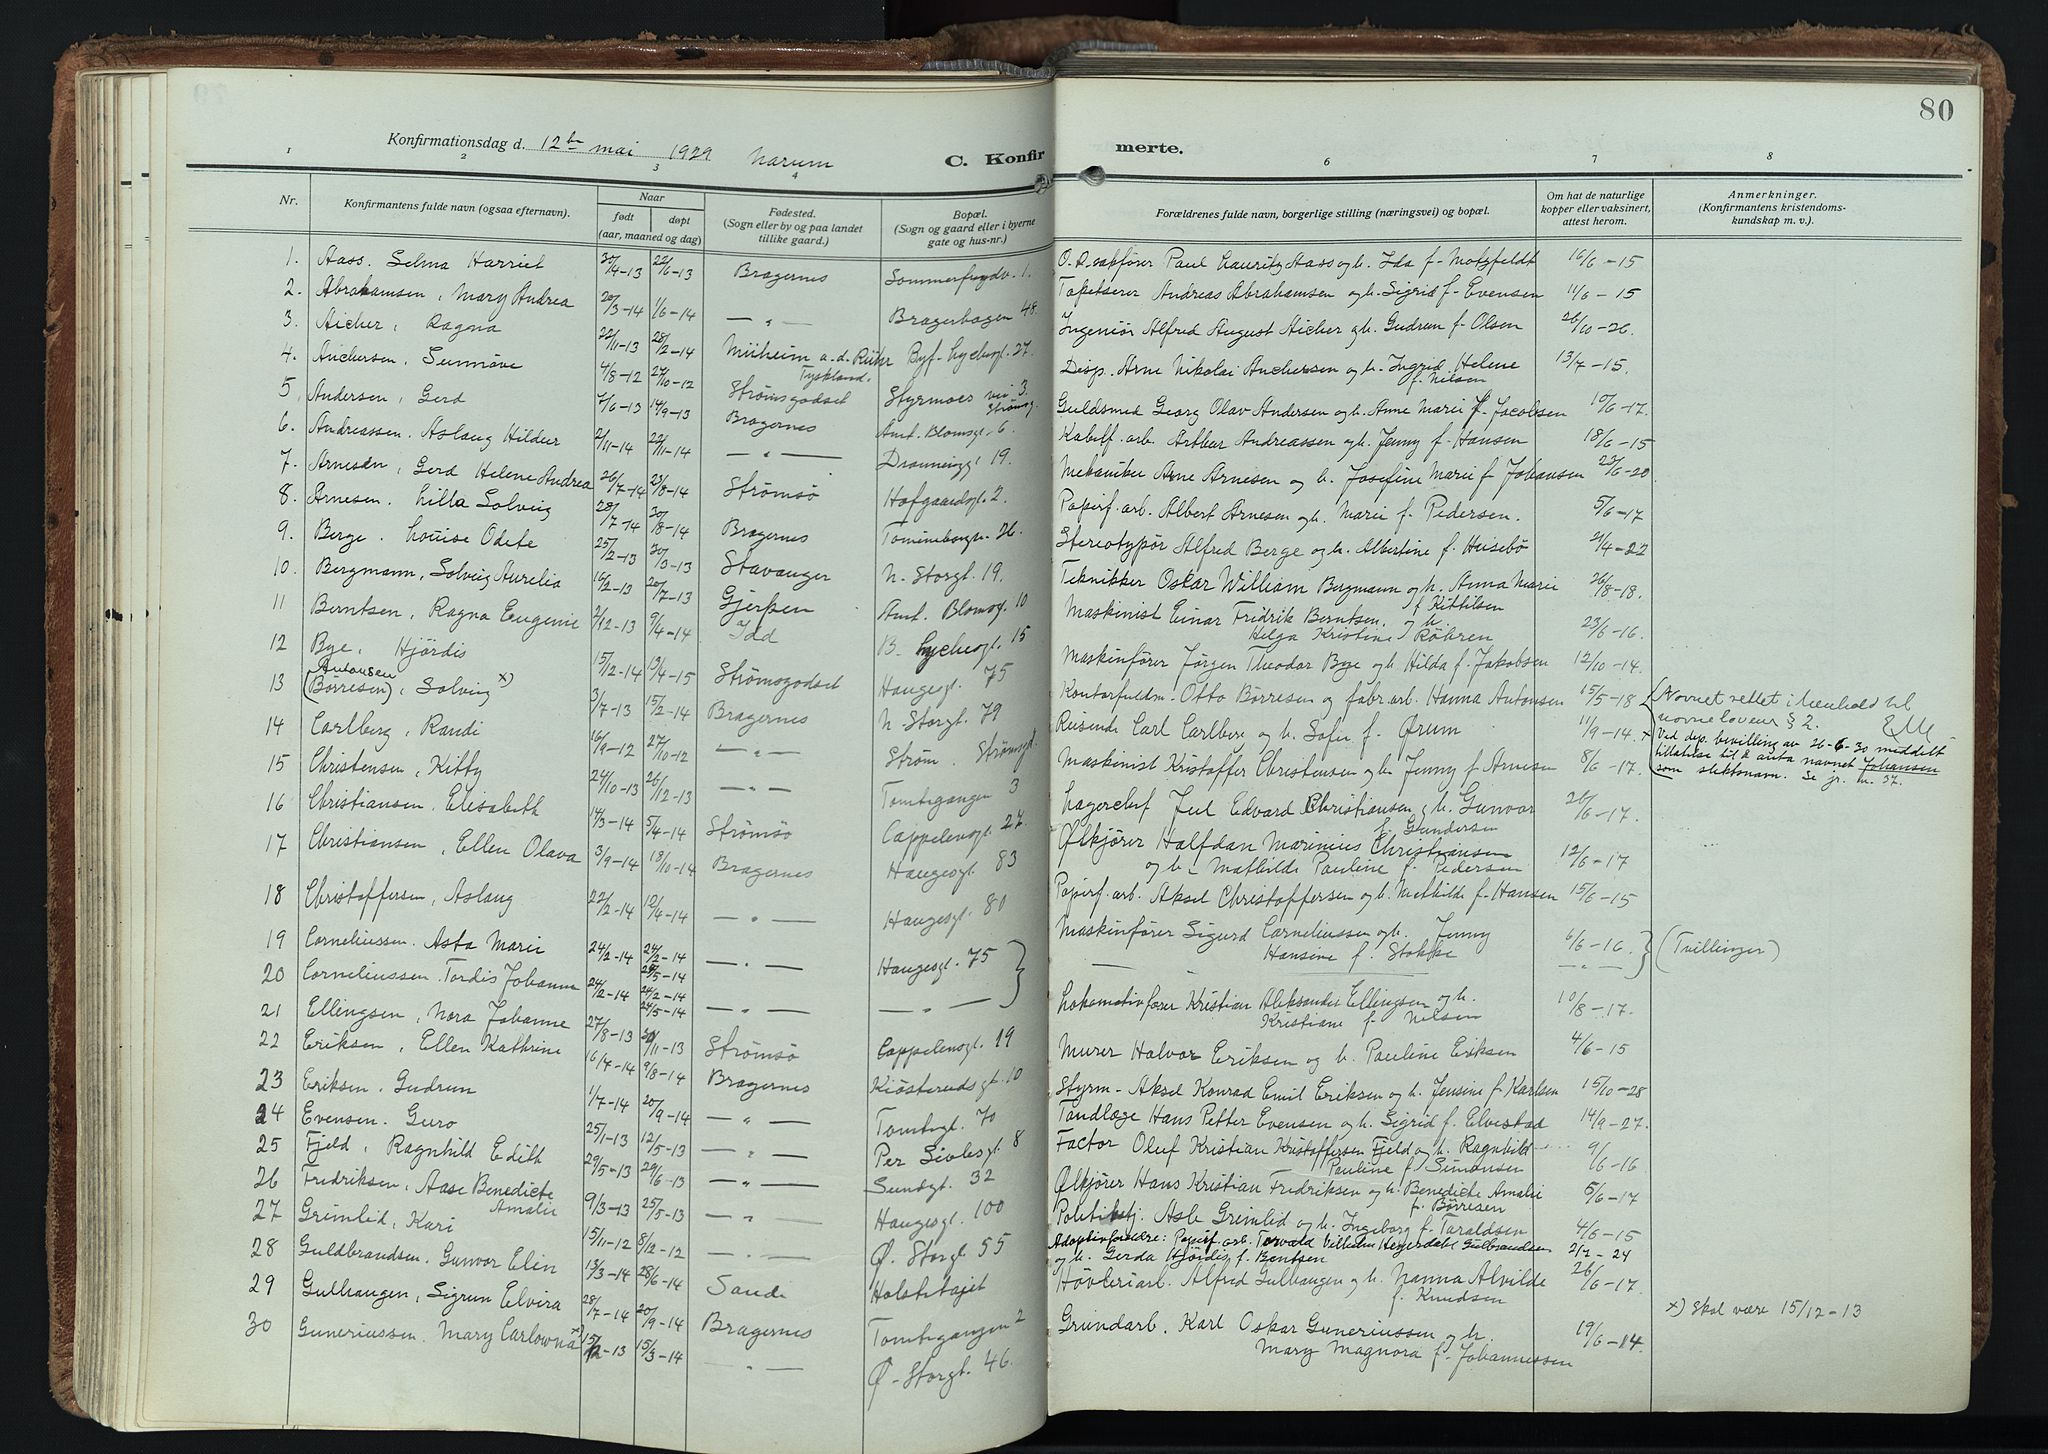 80
Konfirmationsdag d. 12te mai 1929 Narum C. Konfirmerte.
1 2 3 4 6 7 8
Nr. Konfirmantens fulde navn (ogsaa efternavn). Naar født døpt (aar, maaned og dag) Fødested. (Sogn eller by og paa landet tillike gaard.) Bopæl. (Sogn og gaard eller i byerne gate og hus-nr.) Forældrenes fulde navn, borgerlige stilling (næringsvei) og bopæl. Om hat de naturlige kopper eller vaksinert, attest herom. Anmerkninger. (Konfirmantens kristendomskundskap m. v.).
1. Aass. Selma Harriet 30/4-13 22/6-13 Bragernes 1. O.r.sakfører Paul Lauritz Aass og h. Ida f. Motzfeldt 16/6-15
2. Abrahamsen, Mary Andrea 20/3-14 1/6-14 — " — Bragerhagen 48. Tapetserer Andreas Abrahamsen og h. Sigrid f. Evensen 11/6-15
3. Aicher, Ragna 22/11-13 28/2-14 Müheim a.d. Ruhr Tyskland. Byf. Lychesgt. 27. Ingeniør Alfred August Aicher og h. Gudrun f. Olsen 26/10-26.
4. Anchersen, Sunnøve 4/8-12 27/10-12 Strømsgodset Styrmoes vei 3. Strømsg. Disp. Arne Nikolai Anchersen og h. Ingrid Helene f. Nilsen 13/7-15.
5. Andersen, Gerd 7/6-13 14/9-13 Bragernes Amt. Blomsgt. 6. Guldsmed Georg Olav Andersen og h. Anne Marie f. Jacobsen 10/6-17.
6. Andreassen. Aslaug Hildur 2/11-14 22/11-14 — " — Dronninggt 19. Kabelf. arb. Arthur Andreassen og h. Jenny f. Hansen 18/6-15
7. Arnesen, Gerd Helene Andrea 26/7-14 23/8-14 Strømsø Hofgaardsgt. 2. Mekaniker Arne Arnesen og h. Josefine Marie f. Johansen 23/6-20
8. Arnesen. Lilla Solveig 28/7-14 30/8-14 Bragernes 26. Papirf. arb. Albert Arnesen og h. Marie f. Pedersen. 5/6-17
9. Berge. Louise Odete 25/2-13 30/3-13 Stavanger N. Storgt. 19. Stereotypør Alfred Berge og h. Albertine f. Heisebø 21/4-22
10. Bergmann, Solveig Aurelia 16/2-13 20/7-13 Gjerpen Amt. Blomsg. 10 Teknikker Oskar William Bergmann og h. Anna Marie f. Kittilsen 26/8-18.
11 Berntsen, Ragna Eugenie 2/12-13 9/4-14 Idd B. Lychesgt. 15 Maskinist Einar Fridrik Berntsen, og h. Helga Kristine f. Røhren 23/6-16.
12 Bye, Hjördis 15/2-14 13/4-15 Strømsgodset Haugesgt. 75 Maskinfører Jørgen Theodor Bye og h. Hilda f. Jakobsen 12/10-14.
13 Antonsen (Børresen), Solveig x) 3/7-13 15/2-14 Bragernes N. Storgt. 79 Kontorfuldm. Otto Børresen og fabr. arb. Hanna Antonsen 15/5-18 Navnet rettet i henhold til navneloven § 2.
x Ved dep. bevilling av 26-6-30 meddelt tillatelse til å anta navnet Johansen som slektsnavn. Se jr. nr. 37.
14 Carlberg, Randi 16/9-12 27/10-12 — " — Strøm. Strømsgt. Reisende Carl Carlberg og h. Sofie f. Ørum 11/9-14.
15 Christensen, Kitty 24/10-13 26/12-13 — " — Tomtegangen 3 Maskinist Kristoffer Christensen og h. Jenny f. Arnesen 8/6-17.
16 Christiansen, Elisabeth 14/3-14 5/4-14 Strømsø Cappelensgt. 27. Lagerchef Juul Edvard Christiansen og h. Gunvor f. Gundersen 26/6-17.
17 Christiansen, Ellen Olava 3/9-14 18/10-14 Bragernes Haugesgt. 83 Ølkjører Halfdan Marinius Christiansen og h. Mathilde Pauline f. Pedersen 12/6-17
18 Christoffersen, Aslaug 22/2-14 12/4-14 — " — Haugesgt. 80 Papirf. arb. Aksel Christoffersen og h. Mathilde f. Hansen 15/6-15
19 Corneliussen. Asta Marie 24/2-14 24/2-14 24/5-14 — " — Haugesgt. 75 Maskinfører Sigurd Corneliussen og h. Jenny Hansine f. Stokke 6/6-16. (Tvillinger)
20 Corneliussen. Tordis Johanne 24/2-14 24/2-14 24/5-14 — " — — " — — " —
21 Ellingsen, Nora Johanne 27/8-13 30/11-13 Strømsø Cappelensgt. 19 Lokomotivfører Kristian Aleksander Ellingsen og h. Kristiane f. Nilsen 10/8-17.
22 Eriksen, Ellen Kathrine 16/4-14 9/8-14 Bragernes Kiøsterudsgt. 10 Murer Halvor Eriksen og h. Pauline Eriksen 4/6-15
23 Eriksen. Gudrun 1/7-14 20/9-14 — " — Tomtegt. 70 Styrm. Aksel Konrad Emil Eriksen og h. Jensine f. Karlsen 15/10-28
24 Evensen. Guro 25/1-13 12/5-13 — " — Per Sivlesgt 8 Tandlæge Hans Petter Evensen og h. Sigrid f. Elvestad 14/9-27.
25 Fjeld, Ragnhild Edith 29/5-13 29/6-13 — " — Sundgt. 32 Factor Oluf Kristian Kristoffersen Fjeld og h. Ragnhild Pauline f. Simonsen 9/6-16
26 Fredriksen, Aase Benedicte Amalie 9/3-13 25/5-13 — " — Haugesgt. 100 Ølkjører Hans Kristian Fredriksen og h. Benedicte Amalie f. Børresen 5/6-17
27 Grimlid, Kari 15/11-12 8/12-12 — " — Ø. Storgt. 55 Politibetj. Asle Grimlid og h. Ingeborg f. Taraldsen 4/6-15
28 Guldbrandsen. Gunvor Elin 13/3-14 28/6-14 Sande Adoptivforeldre: Papirf. arb. Torvald Vilhelm Guldbrandsen og h. Gerda Hjördis f. Bentsen 2/7-24
29 Gulhaugen, Sigrun Elvira 28/7-14 20/9-14 Bragernes Tomtegangen 2 Høvleriarb. Alfred Gulhaugen og h. Nanna Alvilde f. Knudsen 26/6-17.
30 Guneriussen. Mary Carlowna x) 15/12-13 15/3-14 — " — Ø. Storgt. 46. Grundarb. Karl Oskar Guneriussen og h. Mary Magnora f. Johannessen 19/6-14. x) Skal være 15/12-13